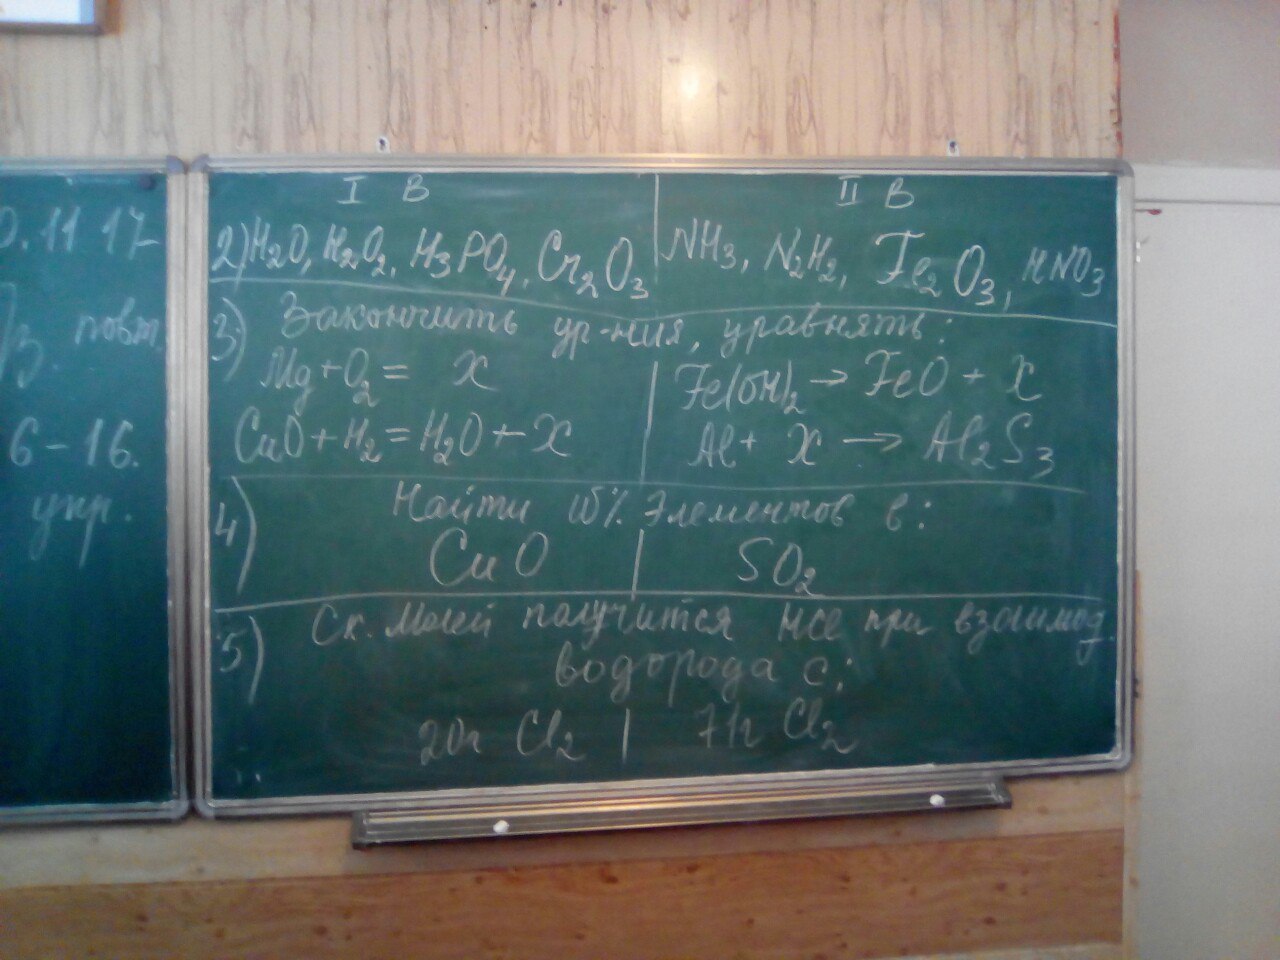 0.11 17
повт.
6-16.
упр.
I В
II В
2) H₂O, H₂O₂, H₃PO₄, Cr₂O₃
NH₃, N₂H₂, Fe₂O₃, HNO₃
3) Закончить ур-ния, уравнять:
Mg + O₂ = X
Fe(OH)₂ → FeO + X
CuO + H₂ = H₂O + X
Al + X → Al₂S₃
4) Найти ω% элементов в:
CuO
SO₂
5) Ск. молей получится HCl при взаимод.
водорода с:
20г Cl₂
71г Cl₂